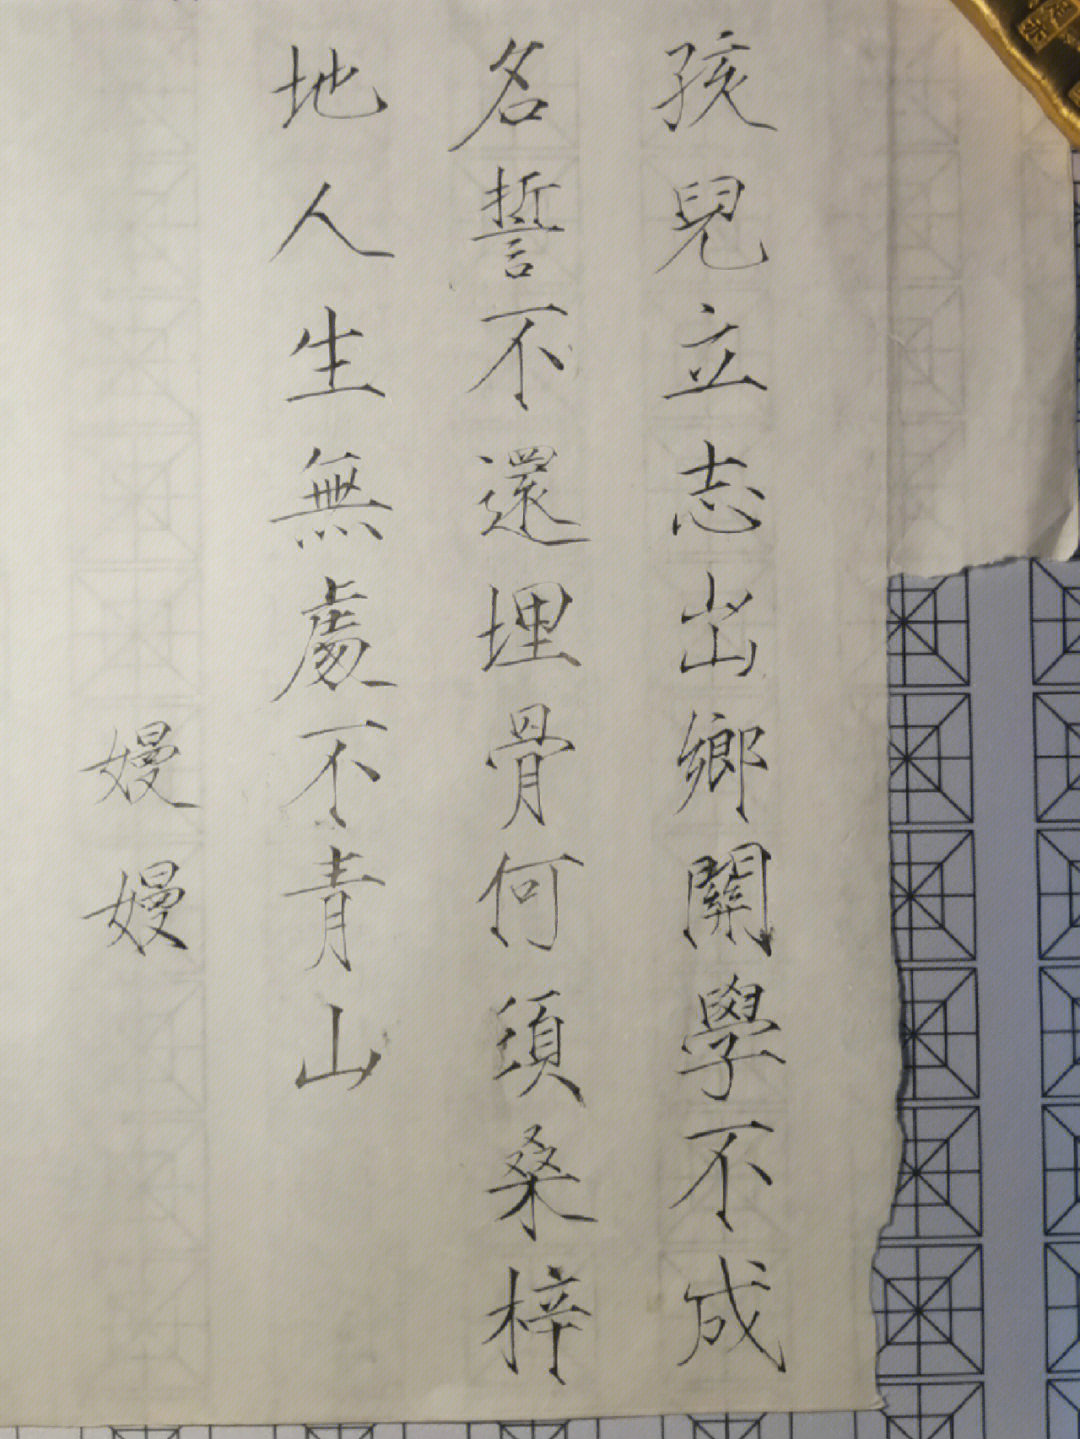 孩兒立志出鄉關學不成
名誓不還埋骨何須桑梓
地人生無處不青山
嫚嫚